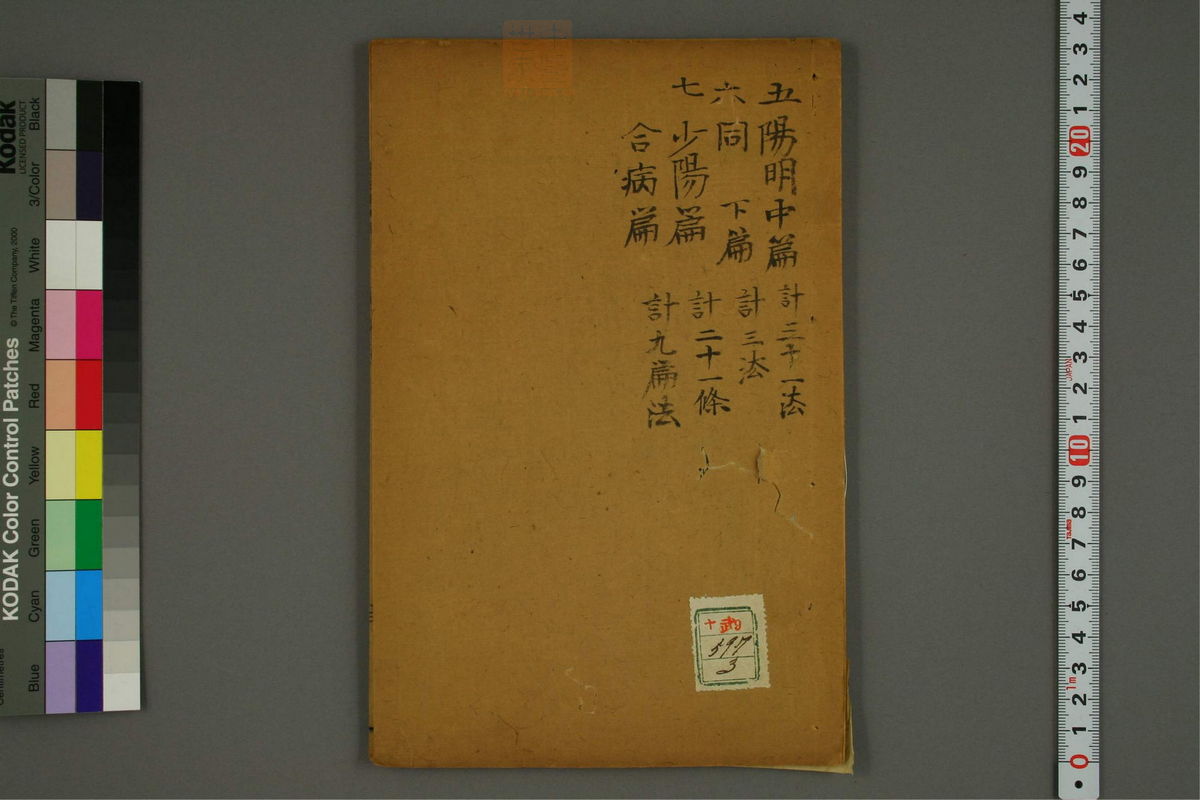 五 陽明中篇 計三十一法
六 同 下篇 計三法
七 少陽篇 計二十一條
合病篇 計九篇法
597
3
KODAK Color Control Patches © The Tiffen Company, 2000
Kodak
LICENSED PRODUCT
Black
3/Color
White
Magenta
Red
Yellow
Green
Cyan
Blue
Centimetres
4
3
2
1
20
9
8
7
6
5
4
3
2
1
10
9
8
7
6
5
4
3
2
1
0
JAPAN
1m